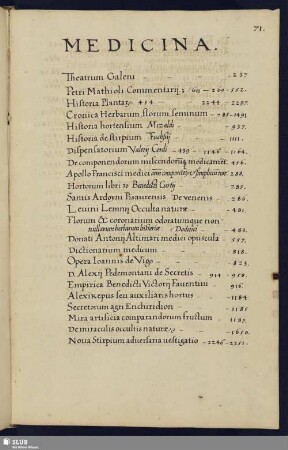 71.
MEDICINA.
Theatrum Galeni - 237
Petri Mathioli Commentarij. 2 60 - 200 - 552.
Historia Plantaz. 414 2244. 2297.
Cronica Herbarum florum seminum - 785-1491
Historia hortensium Mizaldi 937.
Historia de stirpium Fuchsij 1111.
Dispensatorium Valerij Cordi 439 - 1146 - 1164.
De componendorum miscendorumq medicament. 416.
Apollo Francisci medici simpliciumq 288.
Hortorum libri 30 Benedicti Curtij 785.
Santis Ardoyni Pisaurensis De venenis - 286.
Leuini Lemnij Occulta naturæ - 481.
Florum & coronariorum odoratumque non
nullarum herbarum historiæ Dodonei 463.
Donati Antonij Altimari medici opuscula 557.
Dictionarium medicum 818.
Opera Ioannis de Vigo 823.
D. Alexij Pedemontani de Secretis 914 - 958.
Empirica Benedicti Victorij Fauentini 916.
Alexikepus seu auxiliaris hortus 1184
Secretorum agri Enchiridion 1185
Mira artificia comparandorum fructuum 1187.
De miraculis occultis naturæ 1650.
Noua Stirpium aduersaria uestigatio 2246-2251.
SLUB